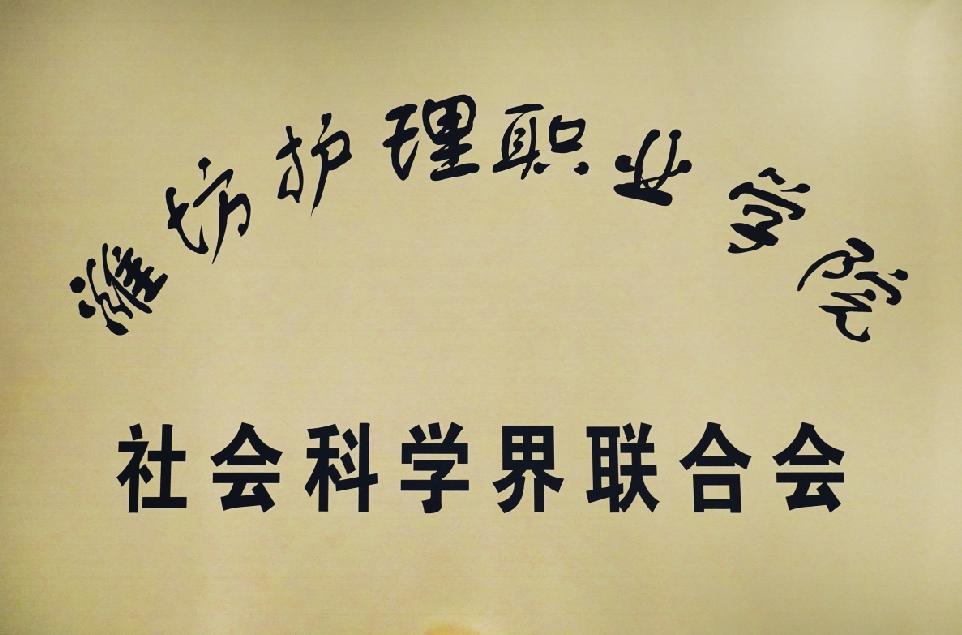 潍坊护理职业学院
社会科学界联合会